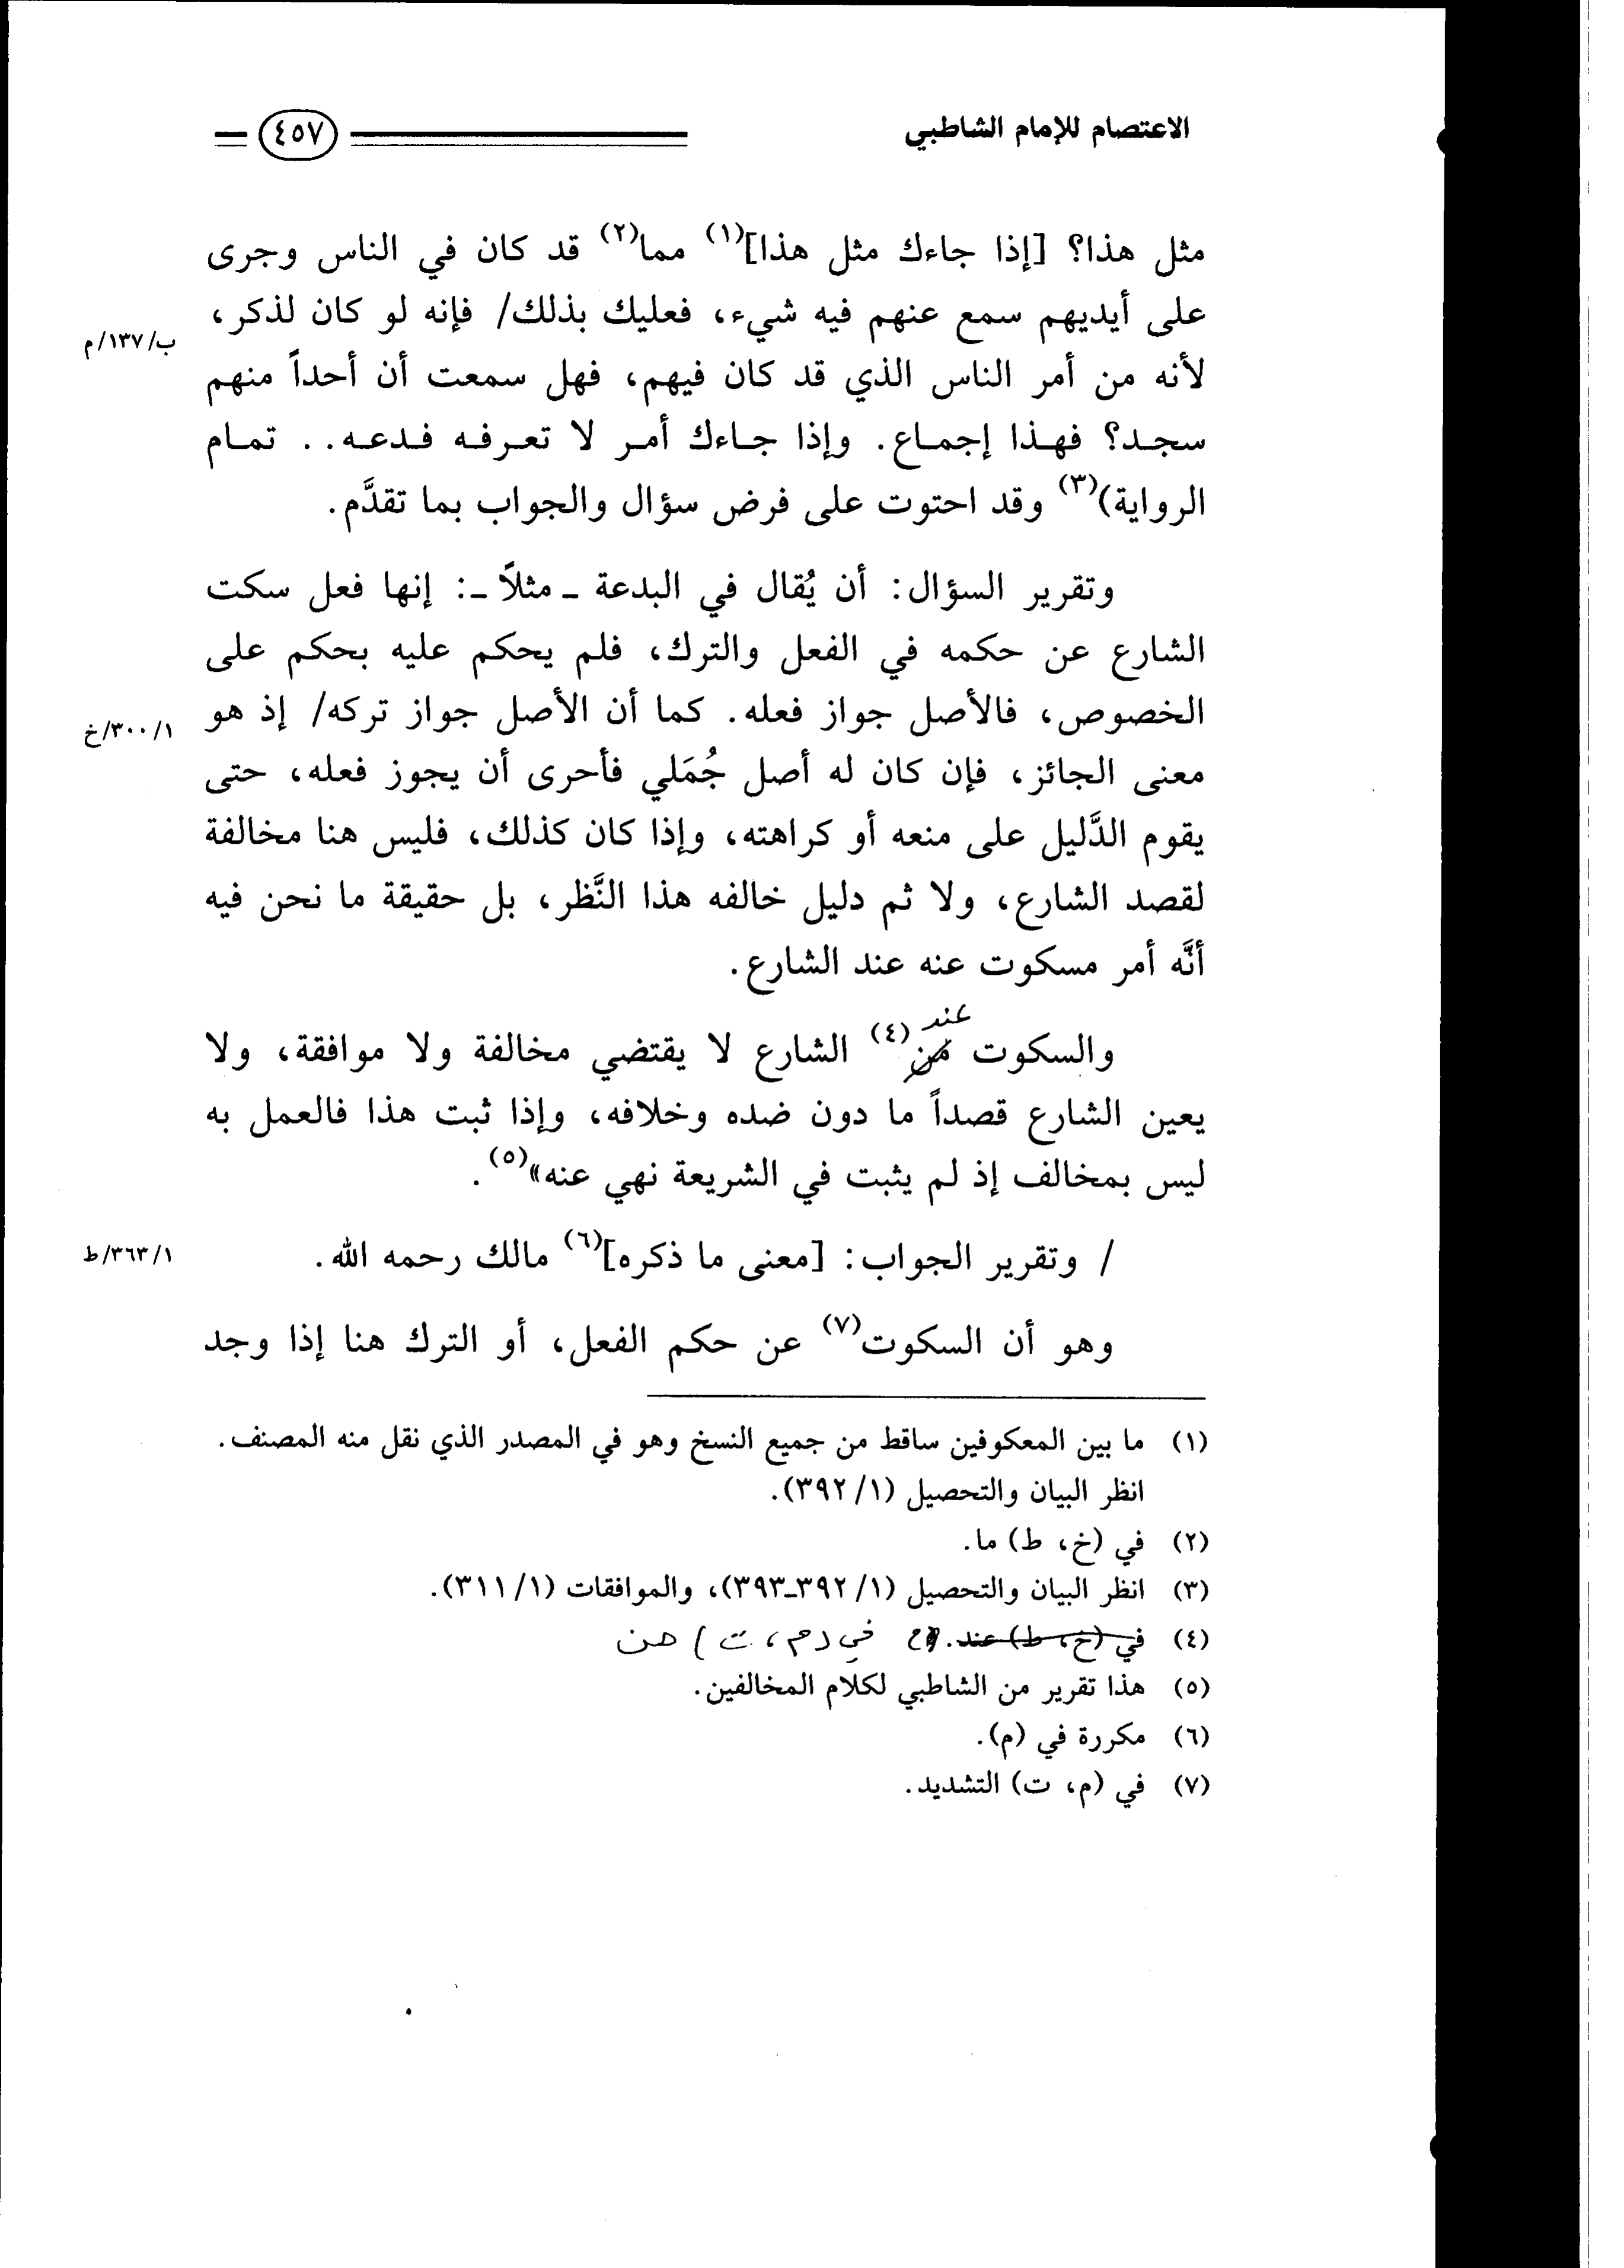 الاعتصام للإمام الشاطبي ٤٥٧
مثل هذا؟ [إذا جاءك مثل هذا](١) مما(٢) قد كان في الناس وجرى
على أيديهم سمع عنهم فيه شيء، فعليك بذلك/ فإنه لو كان لذكر،
ب/١٣٧/م
لأنه من أمر الناس الذي قد كان فيهم، فهل سمعت أن أحداً منهم
سجد؟ فهذا إجماع. وإذا جاءك أمر لا تعرفه فدعه.. تمام
الرواية)(٣) وقد احتوت على فرض سؤال والجواب بما تقدَّم.
وتقرير السؤال: أن يُقال في البدعة ـ مثلاً ـ: إنها فعل سكت
الشارع عن حكمه في الفعل والترك، فلم يحكم عليه بحكم على
الخصوص، فالأصل جواز فعله. كما أن الأصل جواز تركه/ إذ هو
٣٠٠/١/خ
معنى الجائز، فإن كان له أصل جُمَلي فأحرى أن يجوز فعله، حتى
يقوم الدَّليل على منعه أو كراهته، وإذا كان كذلك، فليس هنا مخالفة
لقصد الشارع، ولا ثم دليل خالفه هذا النَّظر، بل حقيقة ما نحن فيه
أنَّه أمر مسكوت عنه عند الشارع.
عند
والسكوت من(٤) الشارع لا يقتضي مخالفة ولا موافقة، ولا
يعين الشارع قصداً ما دون ضده وخلافه، وإذا ثبت هذا فالعمل به
ليس بمخالف إذ لم يثبت في الشريعة نهي عنه»(٥).
/ وتقرير الجواب: [معنى ما ذكره](٦) مالك رحمه الله.
٣٦٣/١/ط
وهو أن السكوت(٧) عن حكم الفعل، أو الترك هنا إذا وجد
(١) ما بين المعكوفين ساقط من جميع النسخ وهو في المصدر الذي نقل منه المصنف.
انظر البيان والتحصيل (٣٩٢/١).
(٢) في (خ، ط) ما.
(٣) انظر البيان والتحصيل (٣٩٢/١ـ٣٩٣)، والموافقات (٣١١/١).
(٤) في (خ، ط) عند. في (م، ت) من
(٥) هذا تقرير من الشاطبي لكلام المخالفين.
(٦) مكررة في (م).
(٧) في (م، ت) التشديد.